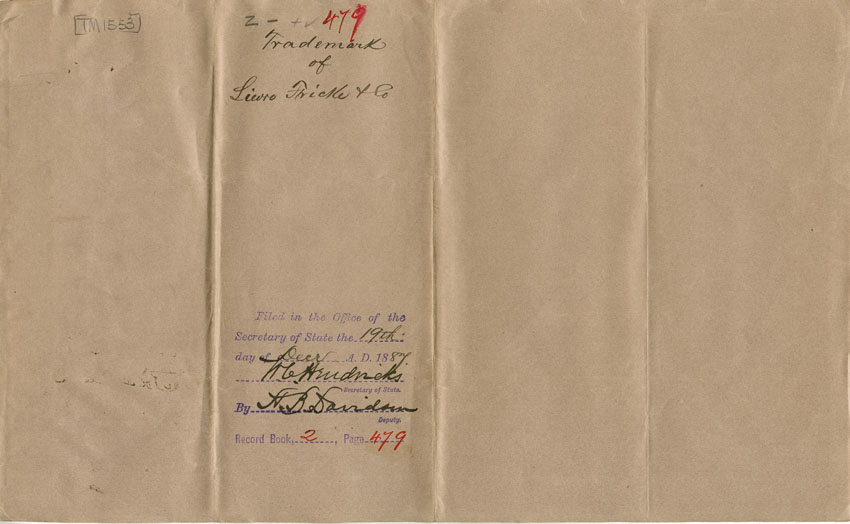 [TM1553]
2 - 479
Trademark
of
Fricke & Co
Filed in the Office of the
Secretary of State the 19th
day of Decr A. D. 1887
W C Hendricks
Secretary of State.
By H. B. Davidson
Deputy.
Record Book, 2, Page 479